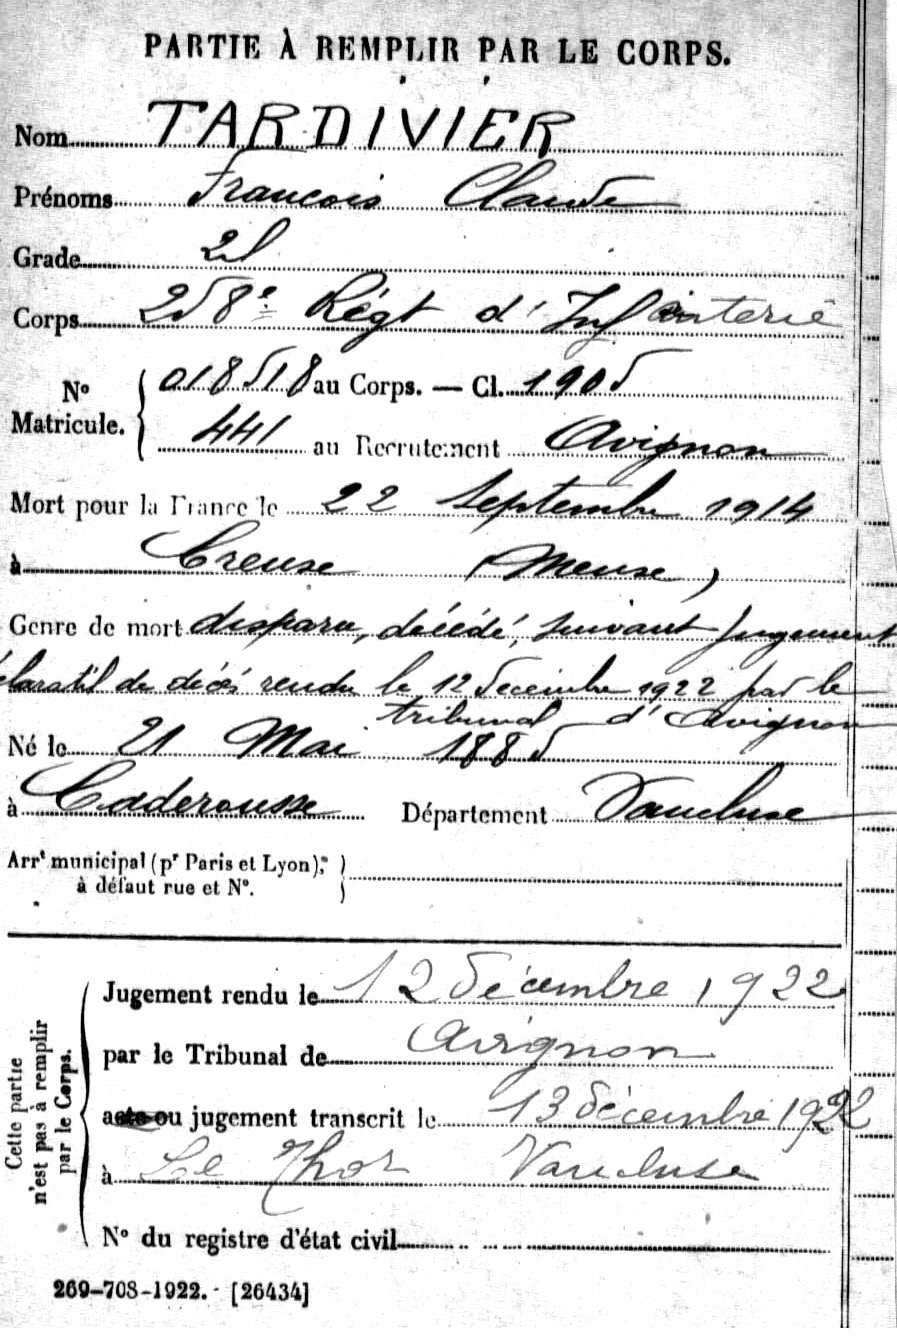 PARTIE À REMPLIR PAR LE CORPS.
Nom TARDIVIER
Prénoms François Claude
Grade 2l
Corps 258e Régt d'Infanterie
No Matricule. 018518 au Corps. — Cl. 1905
441 au Recrutement Avignon
Mort pour la France le 22 Septembre 1914
à Creuse (Meuse)
Genre de mort disparu, décédé, suivant jugement
déclaratif de décès rendu le 12 Decembre 1922 par le
tribunal d'Avignon
Né le 21 Mai 1885
à Caderousse Département Vaucluse
Arrt municipal (pr Paris et Lyon),
à défaut rue et No.
Cette partie n'est pas à remplir par le Corps.
Jugement rendu le 12 décembre 1922
par le Tribunal de Avignon
acte ou jugement transcrit le 13 décembre 1922
à Le Thor Vaucluse
No du registre d'état civil
269-708-1922. - [26434]